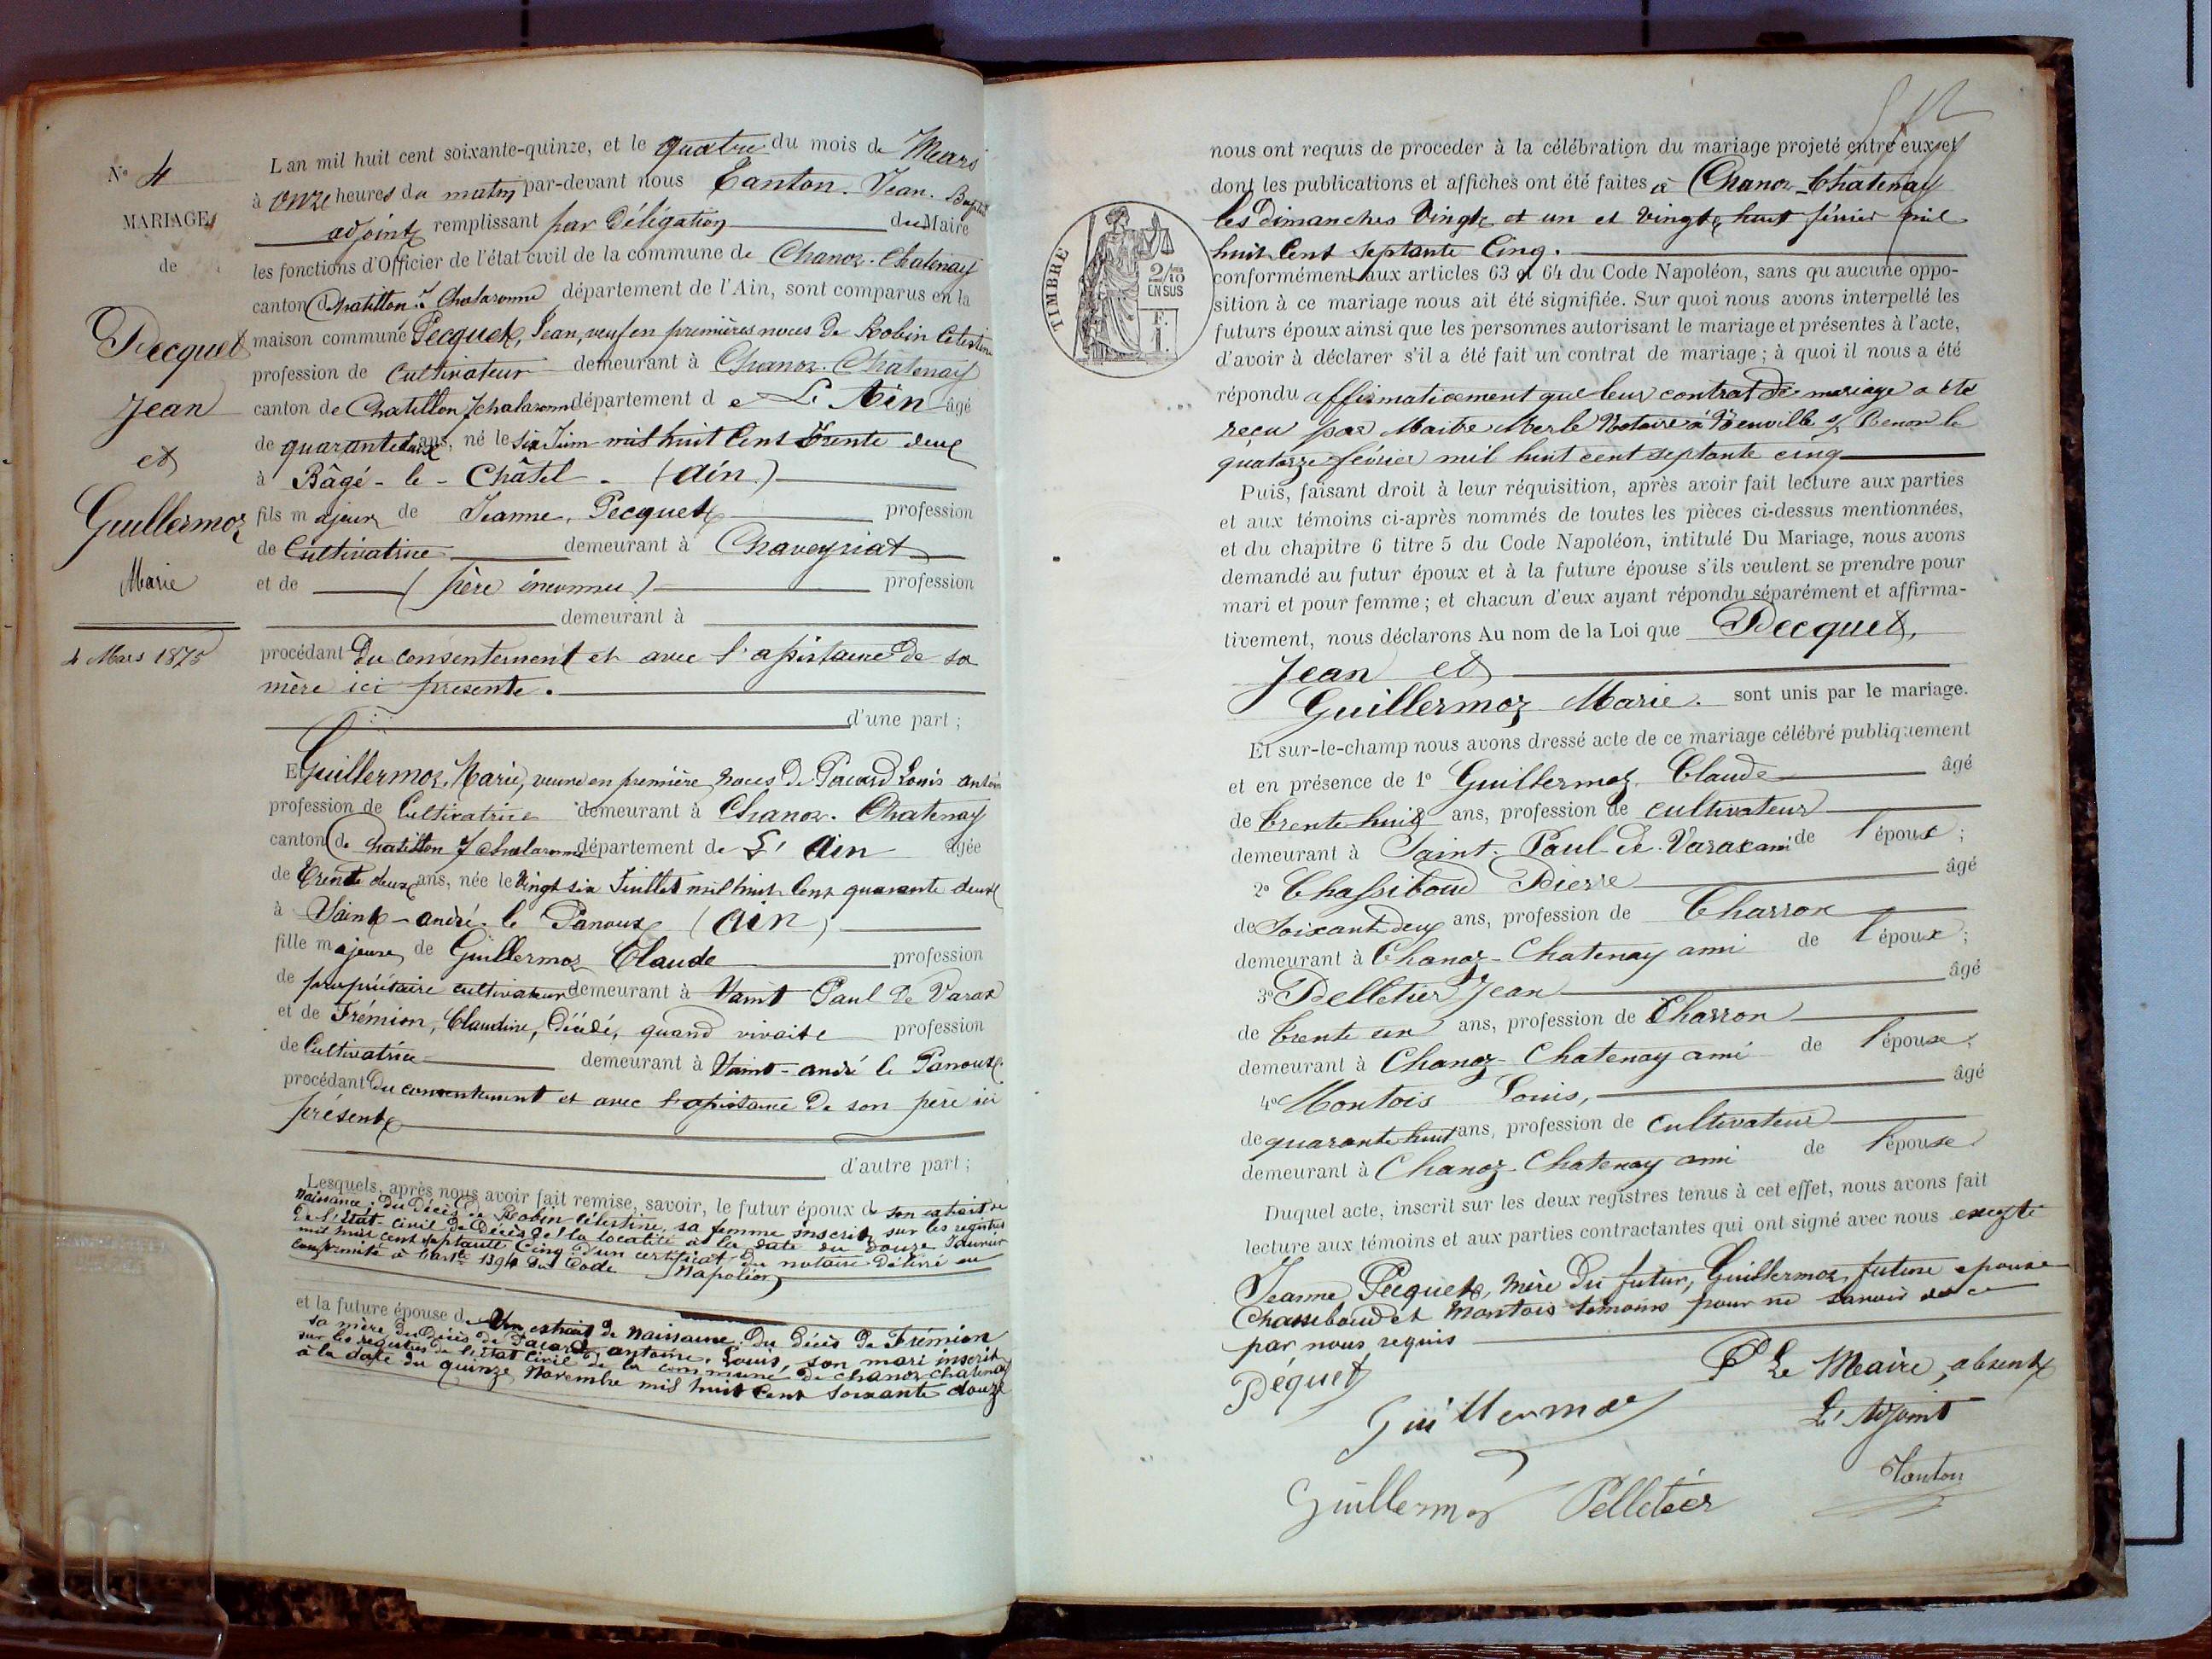 N° 4
MARIAGE
de
Pecquet
Jean
et
Guillermoz
Marie
4 Mars 1875
L'an mil huit cent soixante-quinze, et le quatre du mois de Mars
à onze heures du matin par-devant nous Tanton Jean Baptiste
adjoint remplissant par Délégation du Maire
les fonctions d'Officier de l'état civil de la commune de Chanoz-Chatenay
canton de Chatillon s/ Chalaronne département de l'Ain, sont comparus en la
maison commune Pecquet, Jean, veuf en premières noces de Robin Celestine
profession de Cultivateur demeurant à Chanoz-Châtenay
canton de Chatillon s/ chalaronne département de L'Ain âgé
de quarante deux ans, né le six Juin mil huit Cent trente deux
à Bâgé-le-Châtel - (Ain)
fils majeur de Jeanne, Pecquet profession
de Cultivatrice demeurant à Chaveyriat
et de (père inconnu) profession
demeurant à
procédant Du consentement et avec l'assistance de sa
mère ici presente.
d'une part ;
Et Guillermoz, Marie, veuve en première noces De Pacard Louis antoine
profession de Cultivatrice demeurant à Chanoz-Chatenay
canton de chatillon s/ chalaronne département de L'Ain âgée
de trente deux ans, née le vingt six Juillet mil huit Cent quarante deux
à Saint-andré-le Panoux (Ain)
fille majeure de Guillermoz Claude profession
de propriétaire cultivateur demeurant à Saint Paul De Varax
et de Frémion, Claudine, Décédé, quand vivait profession
de Cultivatrice demeurant à Saint-andré le Panoux
procédant Du consentement et avec l'assistance De son père ici
présent
d'autre part ;
Lesquels, après nous avoir fait remise, savoir, le futur époux de son extrait de
naissance, Du Décès de Robin Célestine, sa femme inscrit sur les registres
de l'Etat-Civil de Décès de la localité à la date du douze Janvier
mil huit cent septante Cinq d'un certificat du notaire Délivré en
conformité à l'art. 1394 du Code Napoléon
et la future épouse de Un extrait de naissance. Du Décès De Frémion
sa mère, du Décès de Pacard antoine, Louis, son mari inscrit
sur les registres de l'Etat Civil de la commune de Chanoz Chatenay
à la date du quinze Novembre mil huit Cent Soixante douze
nous ont requis de procéder à la célébration du mariage projeté entre eux et
dont les publications et affiches ont été faites à Chanoz-Châtenay
les dimanches Vingt et un et Vingt huit février mil
huit Cent septante Cinq.
TIMBRE
2/10
EN SUS
F.
1.
conformément aux articles 63 et 64 du Code Napoléon, sans qu'aucune oppo-
sition à ce mariage nous ait été signifiée. Sur quoi nous avons interpellé les
futurs époux ainsi que les personnes autorisant le mariage et présentes à l'acte,
d'avoir à déclarer s'il a été fait un contrat de mariage ; à quoi il nous a été
répondu affirmativement que leur contrat de mariage a été
reçu par Maitre Merle Notaire à Neuville s/ Renon le
quatorze février mil huit cent septante cinq
Puis, faisant droit à leur réquisition, après avoir fait lecture aux parties
et aux témoins ci-après nommés de toutes les pièces ci-dessus mentionnées,
et du chapitre 6 titre 5 du Code Napoléon, intitulé Du Mariage, nous avons
demandé au futur époux et à la future épouse s'ils veulent se prendre pour
mari et pour femme ; et chacun d'eux ayant répondu séparément et affirma-
tivement, nous déclarons Au nom de la Loi que Pecquet,
Jean et
Guillermoz Marie. sont unis par le mariage.
Et sur-le-champ nous avons dressé acte de ce mariage célébré publiquement
et en présence de 1° Guillermoz Claude âgé
de trente huit ans, profession de cultivateur
demeurant à Saint-Paul-de-Varax ami de l'époux ;
2° Chassiboud Pierre âgé
de Soixante deux ans, profession de Charron
demeurant à Chanoz-Chatenay ami de l'époux ;
3° Pelletier Jean âgé
de trente un ans, profession de Charron
demeurant à Chanoz-Chatenay ami de l'épouse ;
4° Montois Louis, âgé
de quarante huit ans, profession de Cultivateur
demeurant à Chanoz-Chatenay ami de l'épouse
Duquel acte, inscrit sur les deux registres tenus à cet effet, nous avons fait
lecture aux témoins et aux parties contractantes qui ont signé avec nous excepté
Jeanne Pecquet, mère Du futur, Guillermoz future epouse
Chassiboud et Montois témoins pour ne savoir de ce
par nous requis
Péquet
P Le Maire, absent
Guillermoz
L'Adjoint
Tanton
Guillermoz Pelletier